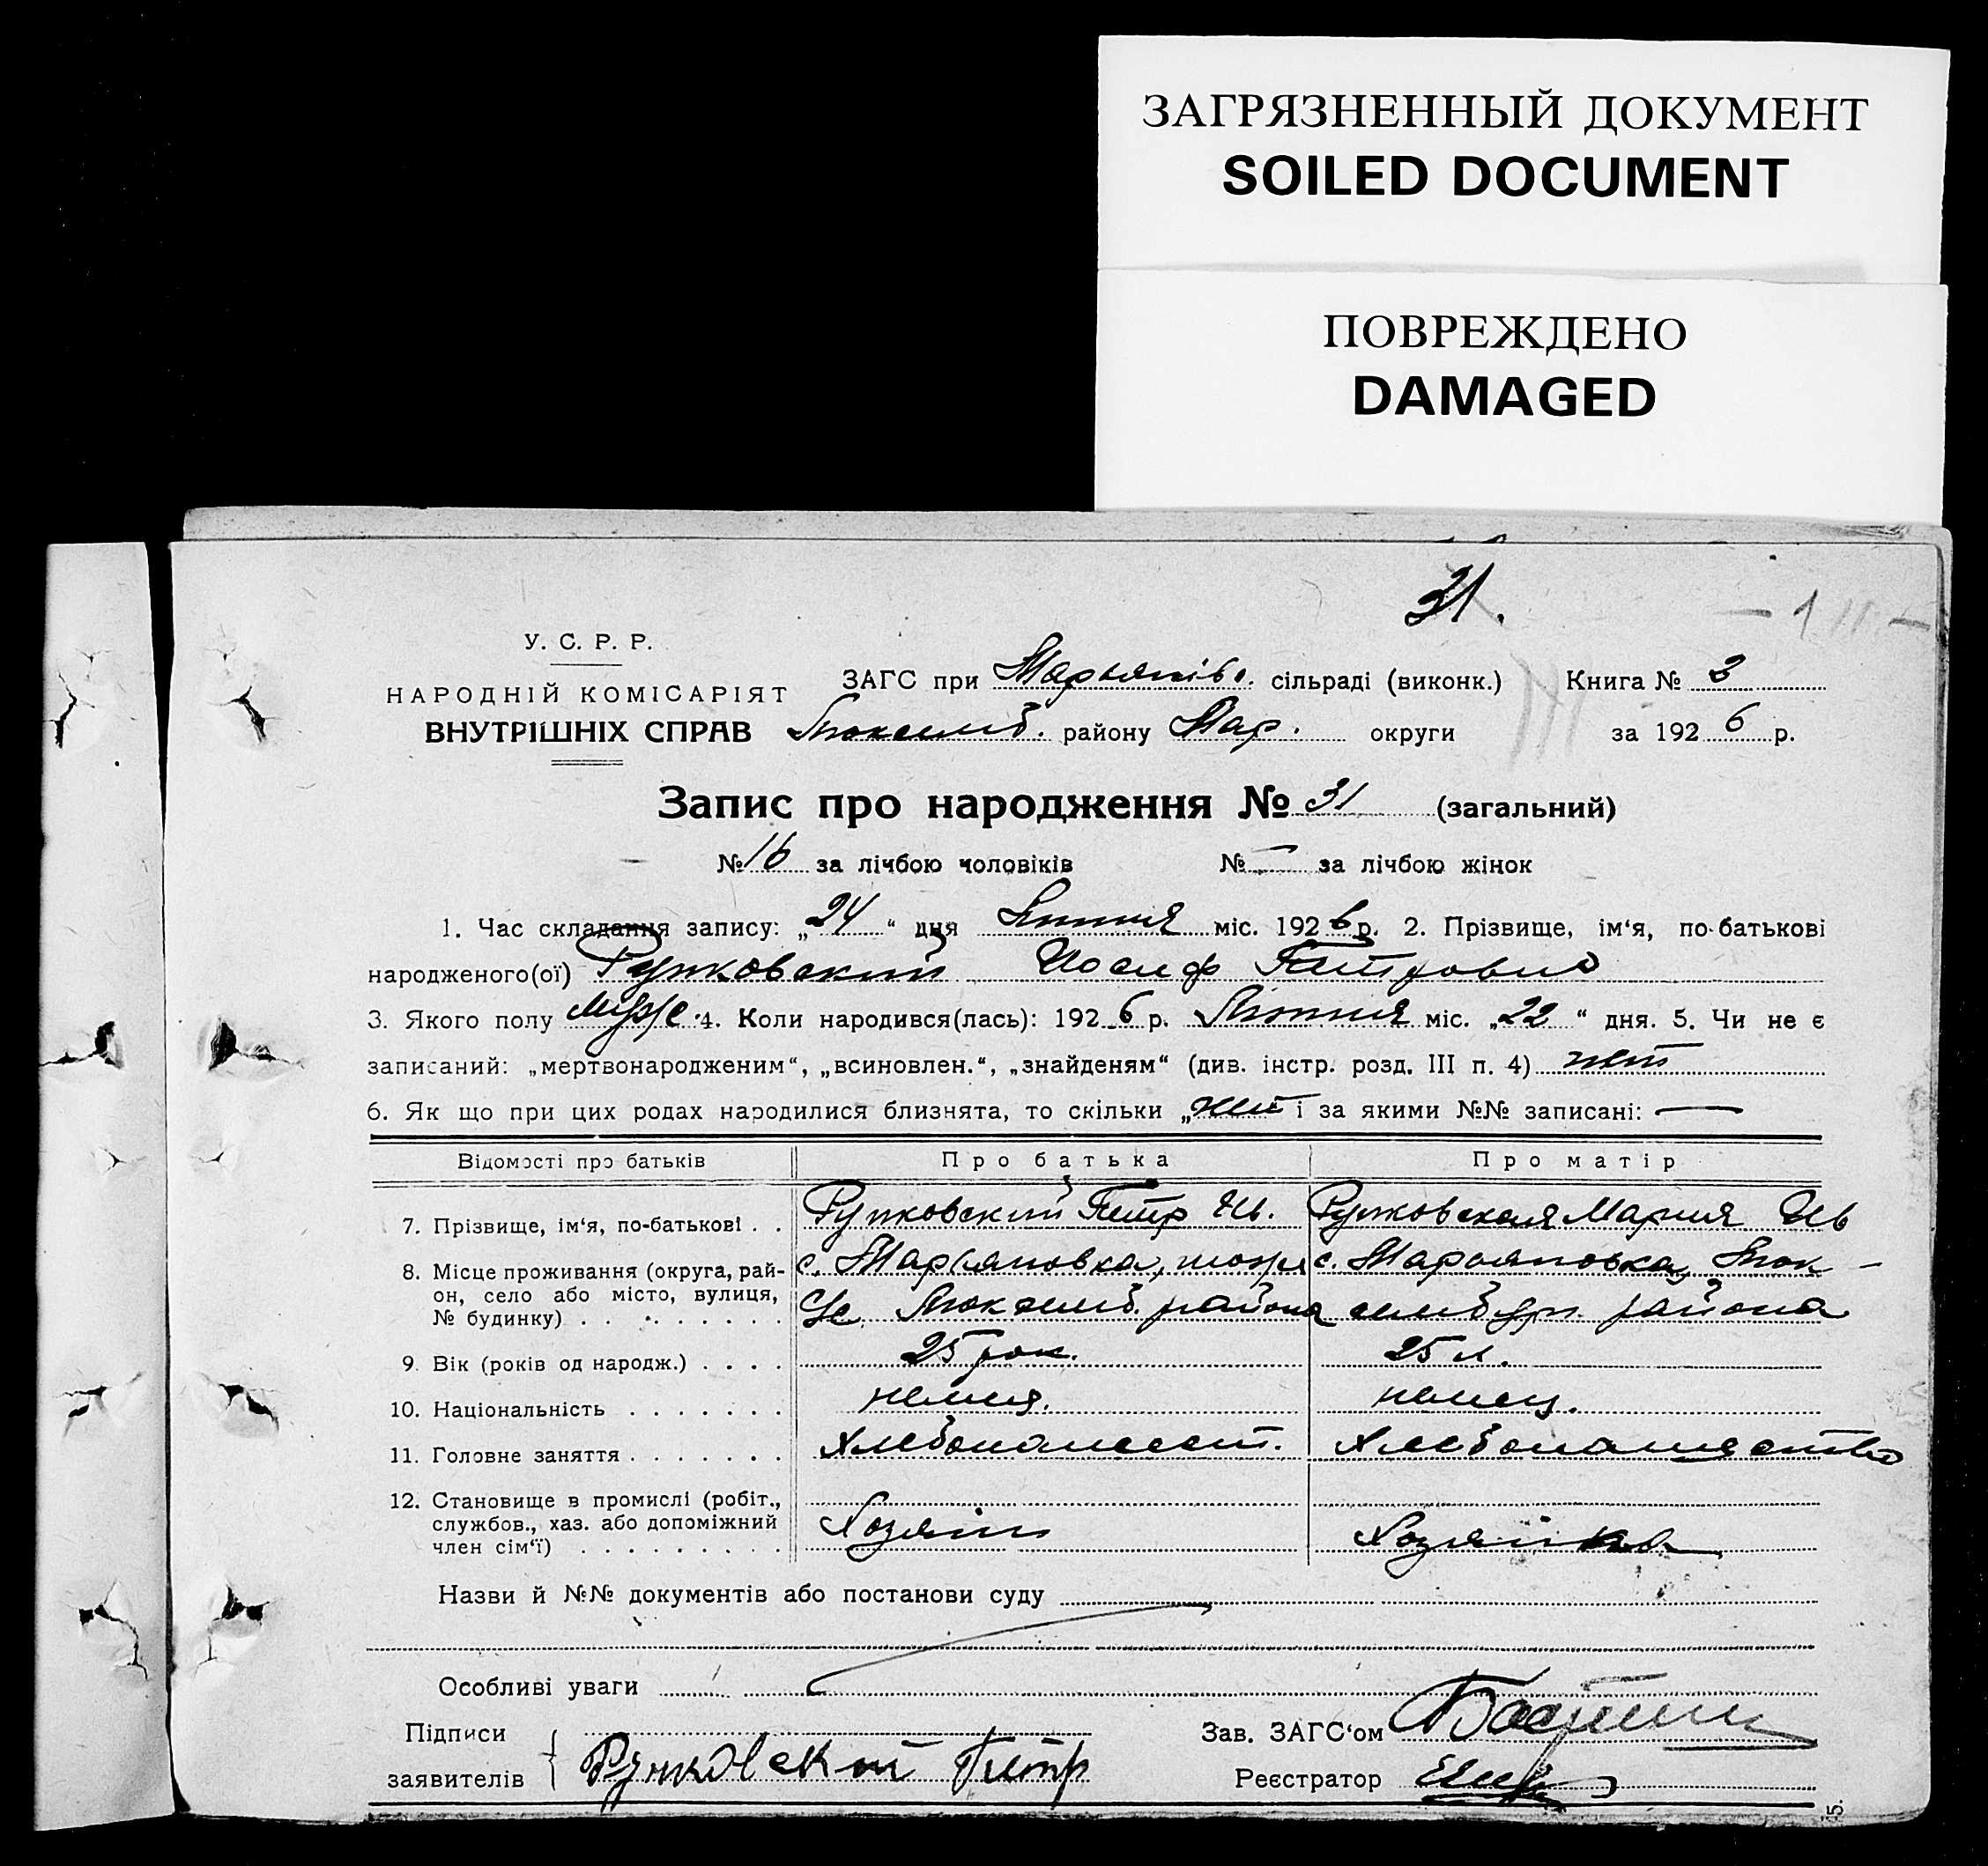 ЗАГРЯЗНЕННЫЙ ДОКУМЕНТ
SOILED DOCUMENT
ПОВРЕЖДЕНО
DAMAGED
31.
У. С. Р. Р.
НАРОДНІЙ КОМІСАРІЯТ
ВНУТРІШНІХ СПРАВ
ЗАГС при Марьянів. сільраді (виконк.) Книга №
Люксемб. району Мар. округи за 1926 р.
Запис про народження № 31 (загальний)
№ 16 за лічбою чоловіків № — за лічбою жінок
1. Час складання запису: „24“ дня міс. 1926 р. 2. Прізвище, ім‘я, по-батькові
народженого(ої) Иосиф Петрович
3. Якого полу муж. 4. Коли народився(лась): 1926 р. міс. „22“ дня. 5. Чи не є
записаний: „мертвонародженим“, „всиновлен.“, „знайденям“ (див. інстр. розд. III п. 4) нет
6. Як що при цих родах народилися близнята, то скільки „нет і за якими №№ записані: —
Відомості про батьків Про батька Про матір
7. Прізвище, ім‘я, по-батькові . . Петр Ив. Мария Ив
8. Місце проживання (округа, рай-
он, село або місто, вулиця,
№ будинку) . . . . . . . . .
с. Марьяновка,
Люксемб. района
с. Марьяновка, Люк-
сембур. района
9. Вік (років од народж.) . . . . 25 рок. 25 л.
10. Національність . . . . . . . немец. немец.
11. Головне заняття . . . . . . . Хлебопашест. Хлебопашество
12. Становище в промислі (робіт.,
службов., хаз. або допоміжний
член сім‘ї) . . . . . . . . .
Хозяін Хозяйка
Назви й №№ документів або постанови суду
Особливі уваги
Підписи
заявителів Петр
Зав. ЗАГС‘ом
Реєстратор